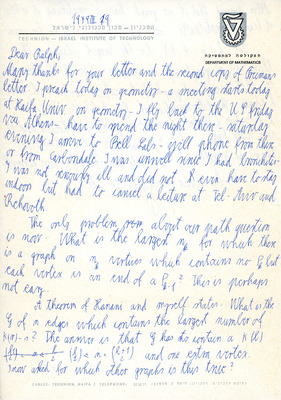 1979 III 29
הטכניון – מכון טכנולוגי לישראל
TECHNION – ISRAEL INSTITUTE OF TECHNOLOGY
הפקולטה למתמטיקה
DEPARTMENT OF MATHEMATICS
Dear Ralph,
Many thanks for your letter and the second copy of
letter. I preach today on geometry – a meeting starts today
at Haifa Univ. on geometry – I fly back to the U.S. friday
via Athens – have to spend the night there – saturday
evening I arrive to Bell Labs – will phone from there
or from Carbondale I was unwell since I had bronchitis
I was not seriously ill and did not even have to stay
indoor but had to cancel a lecture at Tel-Aviv and
Rehovoth
The only problem about our path question
is now. What is the largest for which there
is a graph on vertices which contains no but
each vertex is an end of a This is perhaps
not easy.
A theorem of Hanani and myself states. What is the
G of n edges which contains the largest number of
K(r)-s? The answer is that G has to contain a K(l)
and one extra vertex.
I now asked for which other graphs is this true?